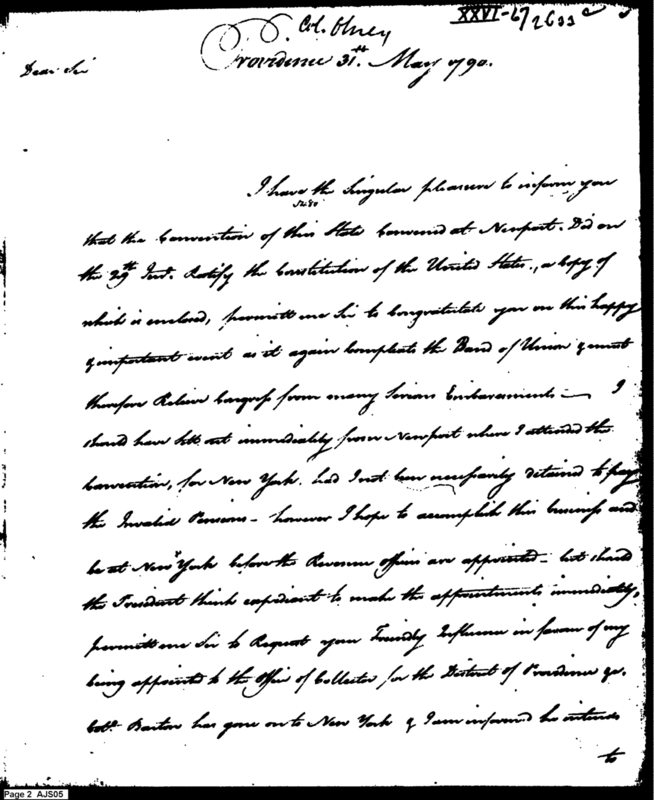 Col. Olney
XXVI-67/2633
Providence 31st. May 1790.
Dear Sir
I have the Singular pleasure to inform you
that the Convention of this State Convened at Newport. Did on
the 29th Inst. Ratify the Constitution of the United States., a Copy of
which is enclosed, permitt me Sir to Congratulate you on this happy
& important event as it again Compleats the Band of Union & must
therefore Releive Congress from many Serious Embarasments — I
should have sett out immediately from Newport where I attended the
Convention, for New York. had I not been necessarily detained to pay
the Invalid Pensions - however I hope to accomplish this business and
be at New York before the Revenue officers are appointed - but should
the President think expedient to make the appointments immediately,
permitt me Sir to Request your Friendly Influence in favour of my
being appointed to the Office of Collector for the District of Providence &c.
Colo. Barton has gone on to New York & I am informed he intends
to
Page 2 AJS05